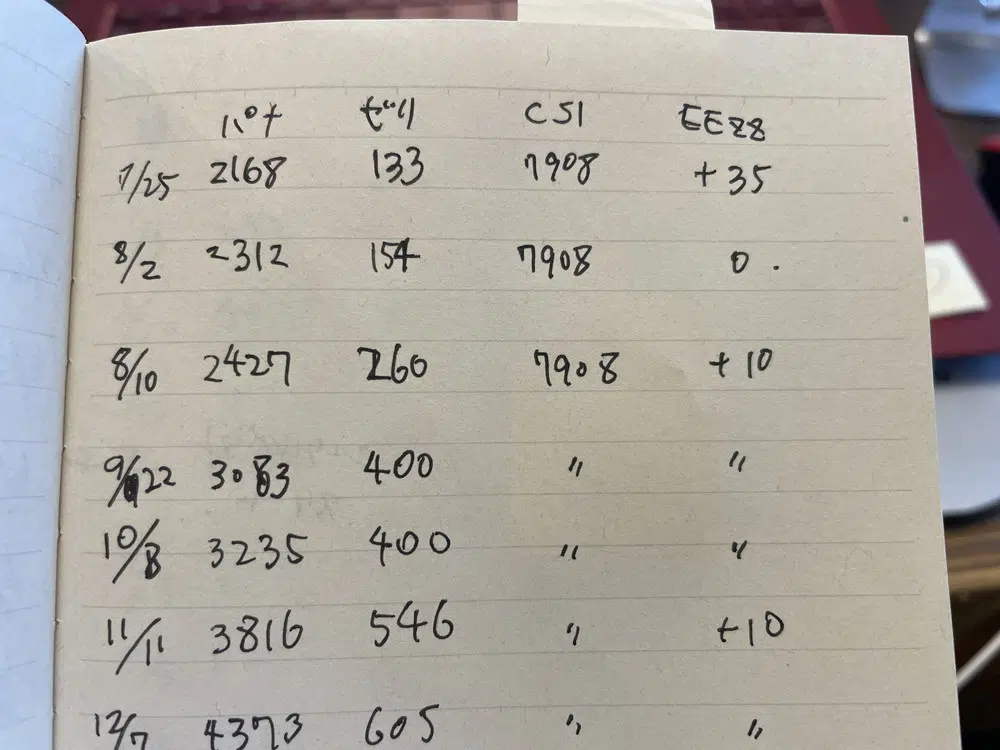 パナ ゼリ CS1 EE28
7/25 2168 133 7908 +35
8/2 2312 154 7908 0 .
8/10 2427 260 7908 +10
9/22 3083 400 〃 〃
10/8 3235 400 〃 〃
11/11 3816 546 〃 +10
12/7 4373 605 〃 〃